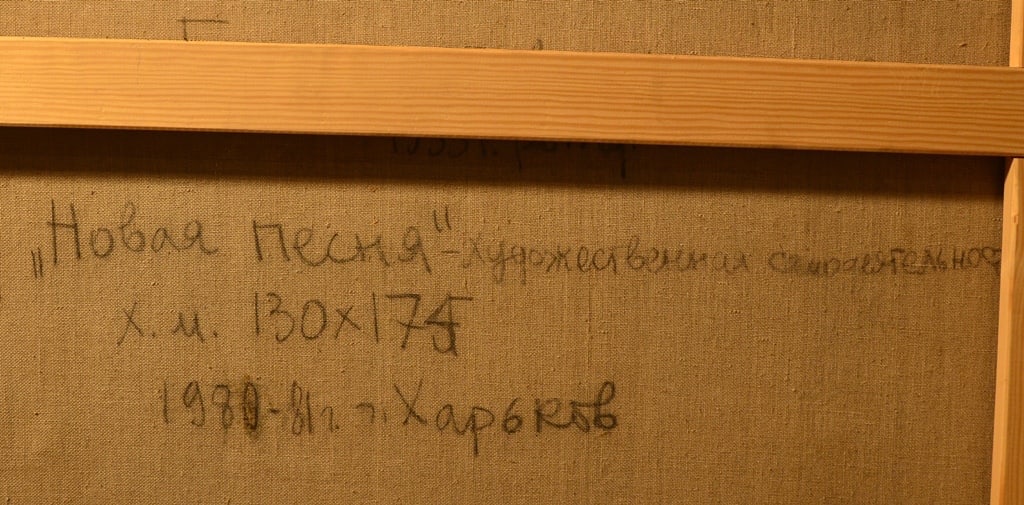 "Новая песня" - художественная самодеятельность
х.м. 130х175
1980-81г. г. Харьков